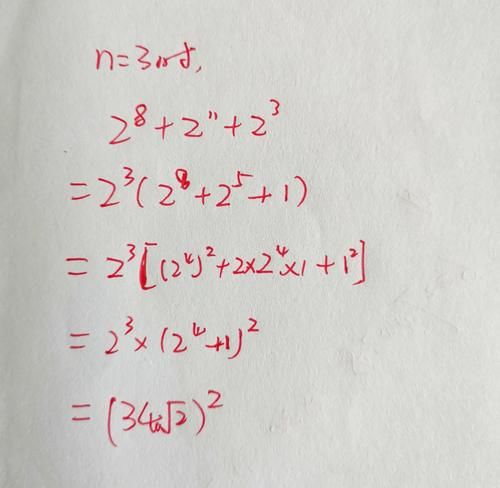 n=3时,
2⁸+2¹¹+2³
=2³(2⁸+2⁵+1)
=2³[(2⁴)²+2×2⁴×1+1²]
=2³×(2⁴+1)²
=(34√2)²